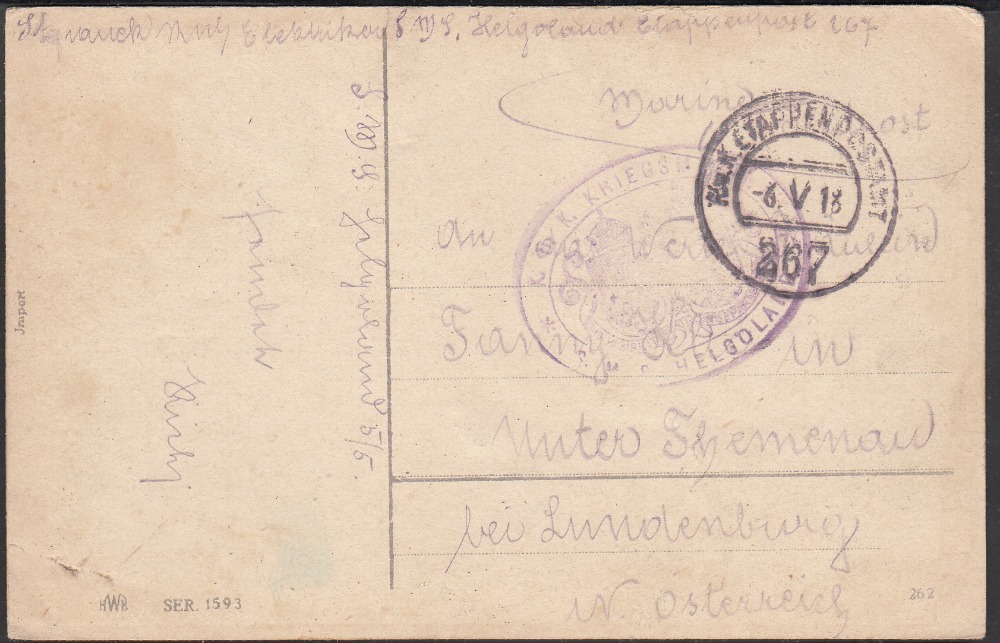 Elektriker S.M.S. Helgoland Etappenpost 267
Marine post
K.u.K. ETAPPENPOSTAMT
-6. V 18
267
K.u.K. KRIEGSM
S.M.S. HELGOLAND
An
Fanny in
Unter Themenau
bei Lundenburg
N. Österreich
S.M.S. Helgoland 5/5.
sendet
Import
HWB SER. 1593
262